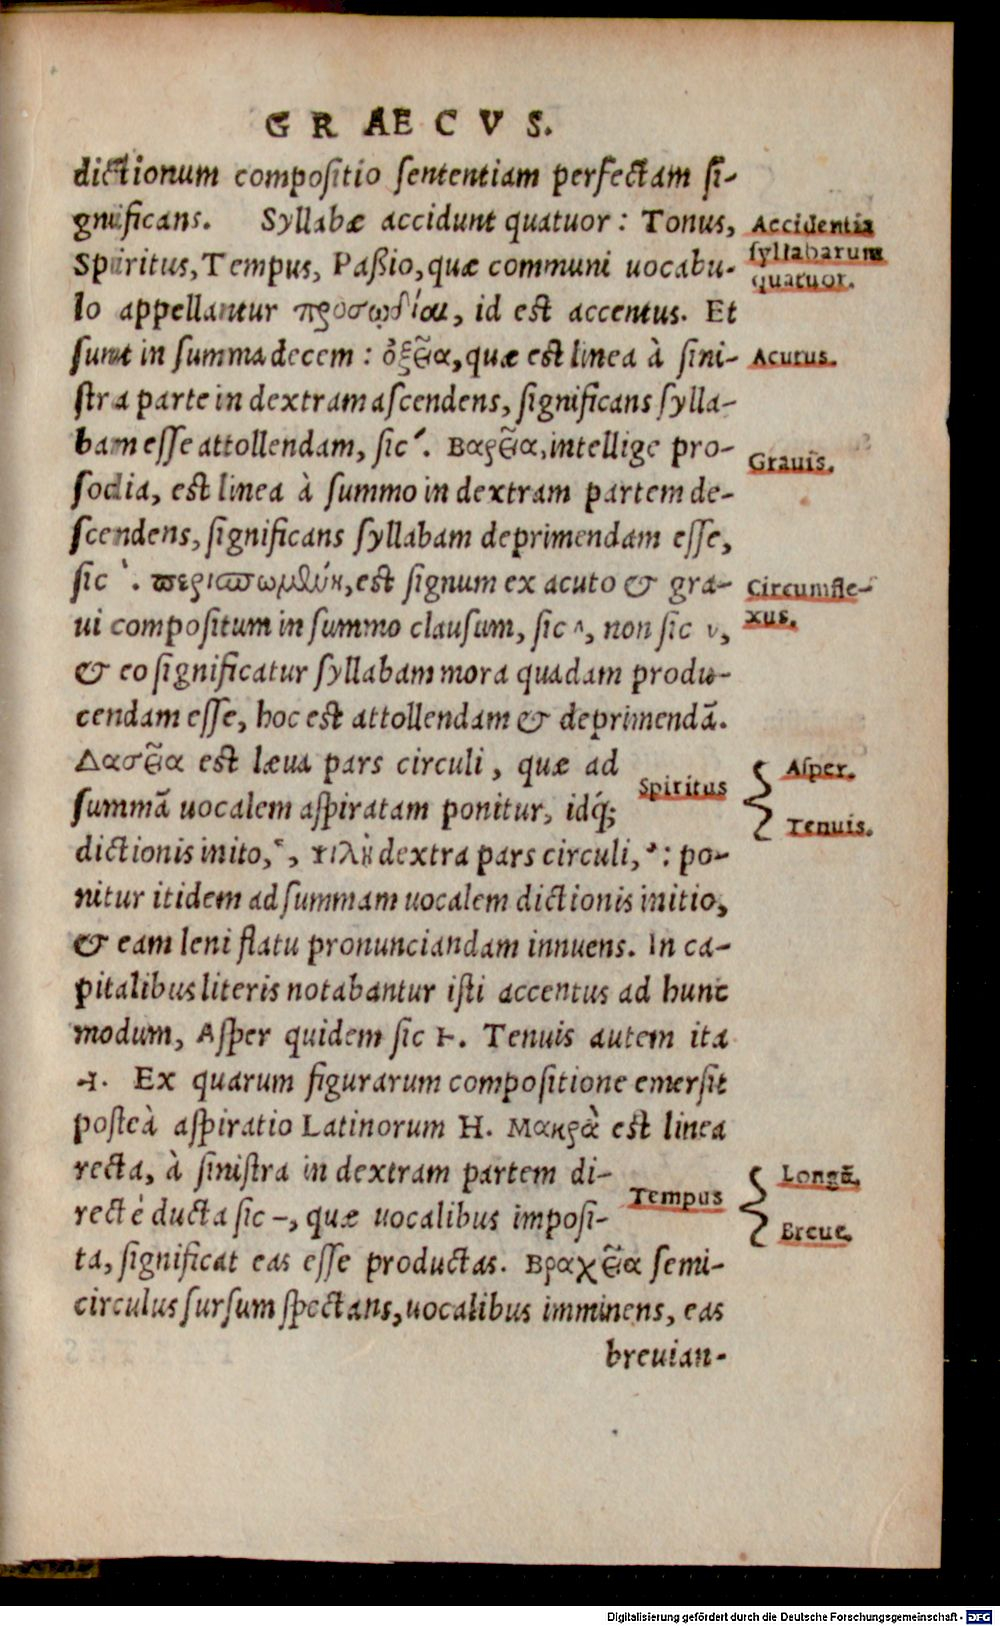 GRAECVS.
dictionum compositio sententiam perfectam si-
gnificans. Syllabæ accidunt quatuor: Tonus,
Spiritus, Tempus, Paßio, quæ communi uocabu-
lo appellantur προσῳδίαι, id est accentus. Et
sunt in summa decem: ὀξεῖα, quæ est linea à sini-
stra parte in dextram ascendens, significans sylla-
bam esse attollendam, sic ´. Βαρεῖα, intellige pro-
sodia, est linea à summo in dextram partem de-
scendens, significans syllabam deprimendam esse,
sic `. περισπωμένη, est signum ex acuto & gra-
ui compositum in summo clausum, sic ^, non sic v,
& eo significatur syllabam mora quadam produ-
cendam esse, hoc est attollendam & deprimendã.
Δασεῖα est læua pars circuli, quæ ad
summã uocalem aspiratam ponitur, idq́;
dictionis inito, ῾, ψιλὴ dextra pars circuli, ᾿: po-
nitur itidem ad summam uocalem dictionis initio,
& eam leni flatu pronunciandam innuens. In ca-
pitalibus literis notabantur isti accentus ad hunc
modum, Asper quidem sic Ⱶ. Tenuis autem ita
˧. Ex quarum figurarum compositione emersit
posteà aspiratio Latinorum H. Μακρὰ est linea
recta, à sinistra in dextram partem di-
rectè ducta sic –, quæ uocalibus imposi-
ta, significat eas esse productas. Βραχεῖα semi-
circulus sursum spectans, uocalibus imminens, eas
breuian-
Accidentia
syllabarum
quatuor.
Acutus.
Grauis.
Circumfle-
xus.
Spiritus
Asper.
Tenuis.
Tempus
Longã.
Breue.
Digitalisierung gefördert durch die Deutsche Forschungsgemeinschaft - DFG